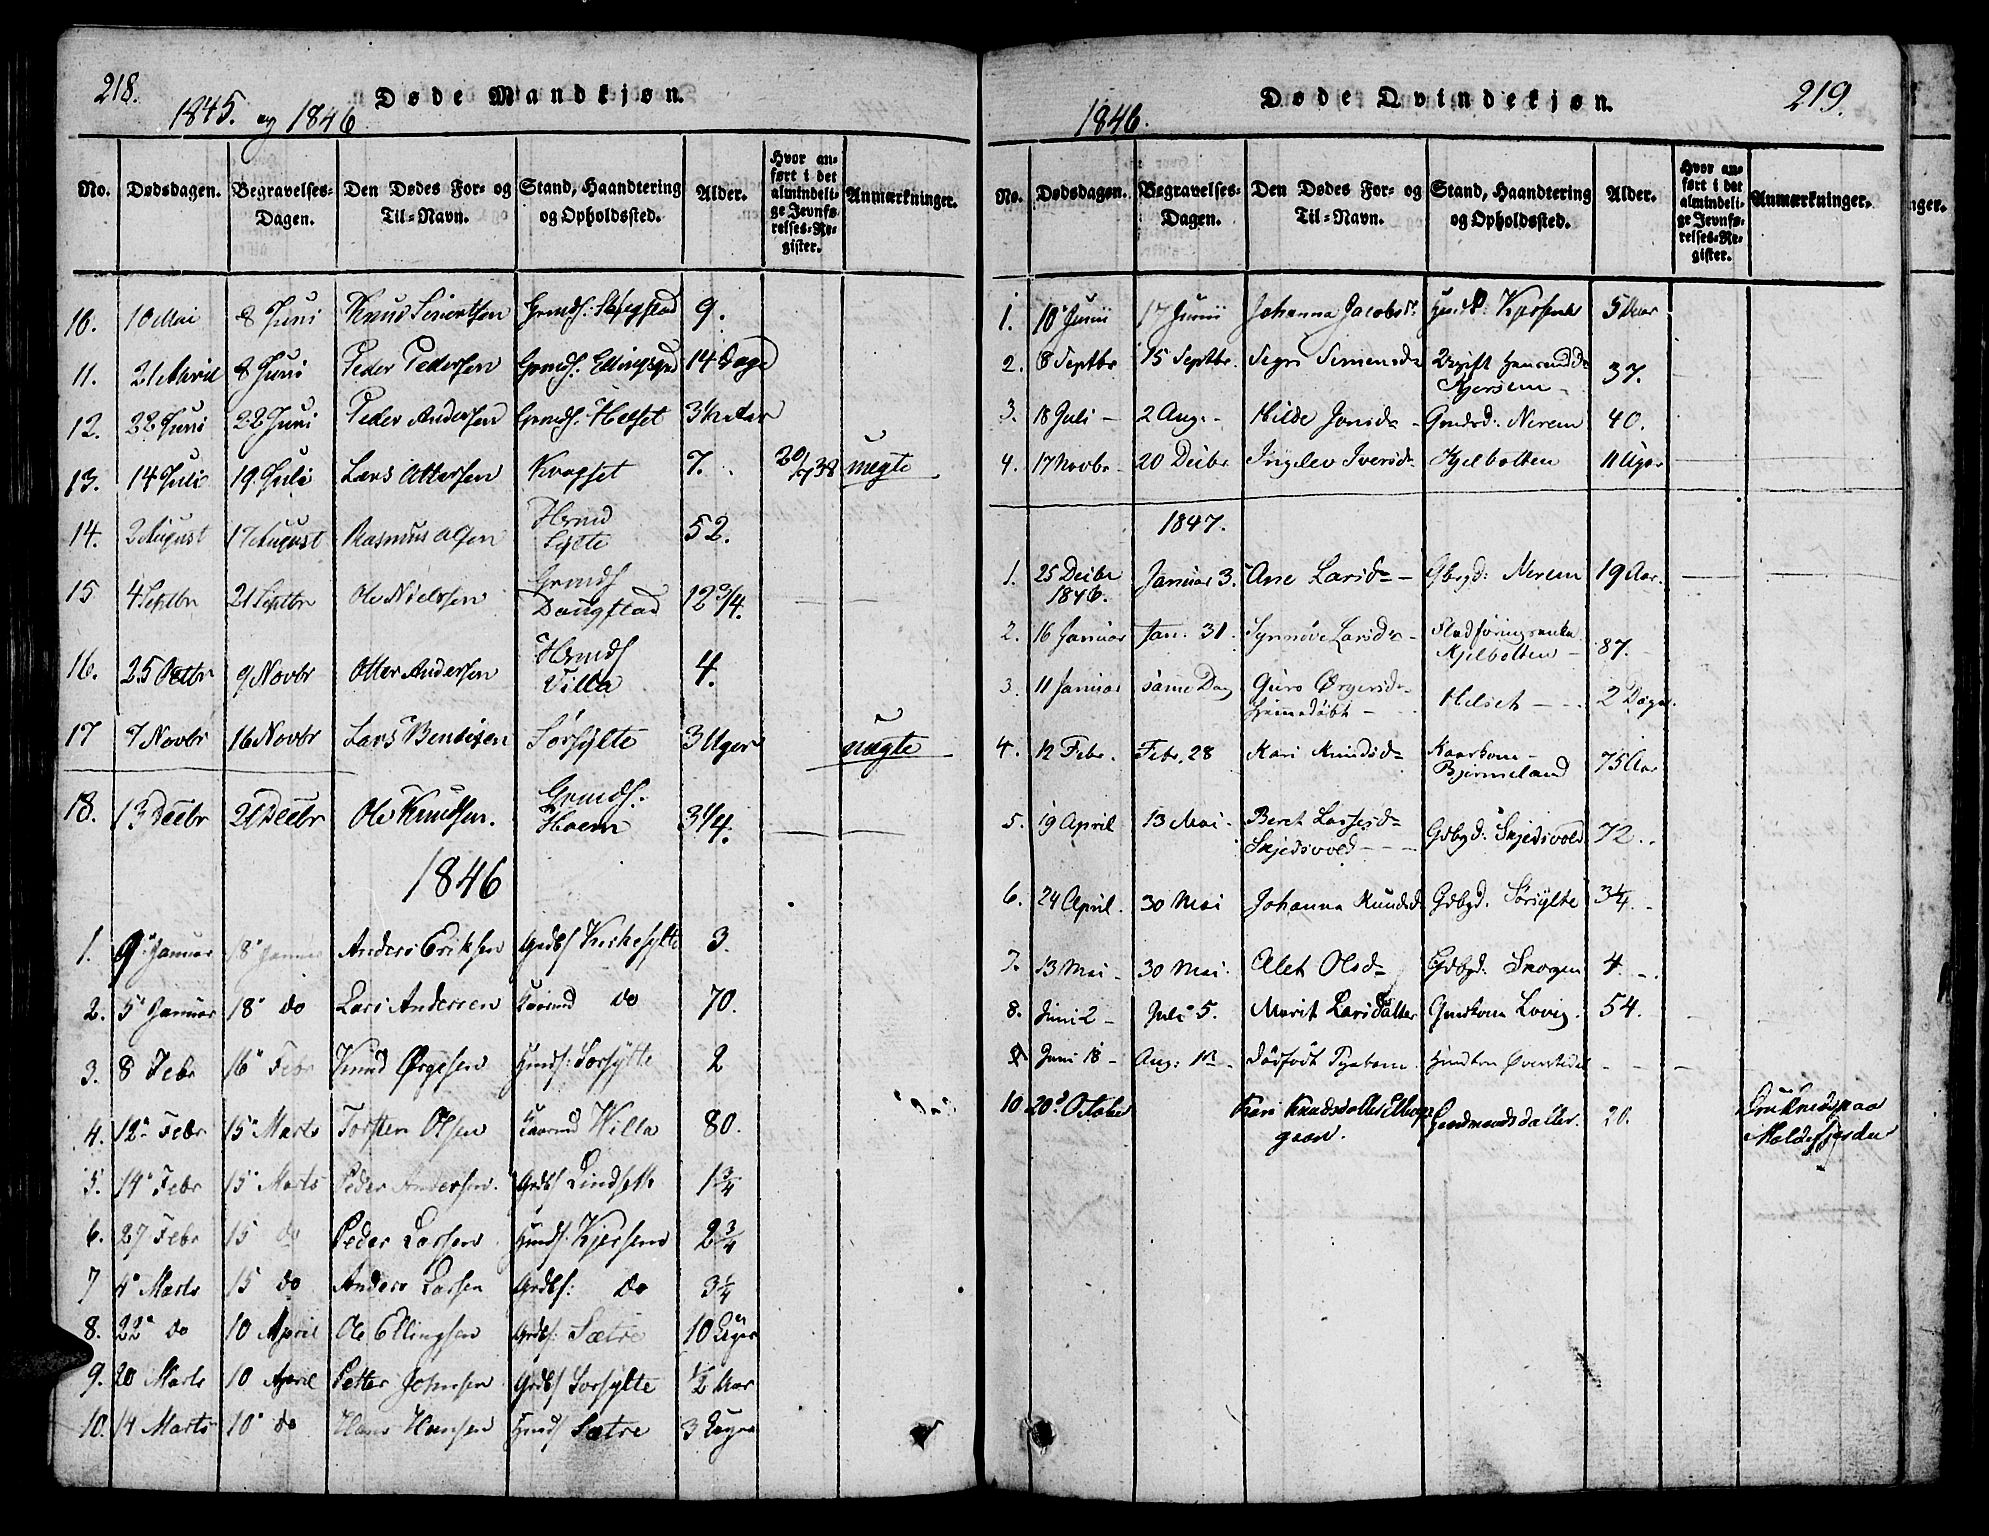 218.
Døde Mandkjøn.
1845. og 1846
No. Dødsdagen. Begravelses-Dagen. Den Dødes For- og Til-Navn. Stand, Haandtering og Opholdssted. Alder. Hvor anført i det almindelige Jevnførelses-Register. Anmærkninger.
10. 10 Mai 8 Juni Knud Sivertsen 9.
11. 21 April 8 Juni Peder Pedersen 14 Dage
12. 22 Juni 22 Juni Peder Andersen Grmds: Helset
13. 14 Juli 19 Juli Lars Ottersen Kragset 7. nægte
14. 2 August 17 August Rasmus Olsen Hmd Sylte 52.
15 4 Septbr 21 Septbr Ole Nielsen Grmds Daugstad 12 3/4.
16. 25 Octbr 9 Novbr Otter Andersen Hmds Villa 4.
17 7 Novbr 16 Novbr Lars Bendixen Sørsylte 3 Uger nægte
18. 13 Decbr 21 Decbr Ole Knudsen. Grmds: Hoem 3 1/4.
1846
1. 9 Januar 18 Januar Anders Eriksen Grdbs Kirkesylte 3.
2. 5 Januar 18 do Lars Andersen Kaarmd do 70.
3. 8 Febr 16 Febr Knud Ørgesen Hmds: Sorsylte 2
4. 12 Febr 15 Marts Torsten Olsen Kaarmd Willa 80.
5. 14 Febr 15 Marts Peder Andersen. Grdbs Lindseth 1 3/4
6. 27 Febr 15 do Peder Larsen Hmds: Kjersem 2 3/4
7 4 Marts 15 do Anders Larsen Grdbs: do 3 1/4
8. 22 do 10 April Ole Ellingsen Grdbs: Sætre 10 Uger
9. 20 Marts 10 April Petter Johnsen Grdbs Sorsylte 1/2 Aar
10. 14 Marts 10 do Hans Hansen Hmds Sætre 3 Dage
219.
Døde Qvindekjøn.
1846.
No. Dødsdagen. Begravelses-Dagen. Den Dødes For- og Til-Navn. Stand, Haandtering og Opholdssted. Alder. Hvor anført i det almindelige Jevnførelses-Register. Anmærkninger.
1. 10 Junii 17 Junii Johanna Jacobsd. Kjersem 5 Aar
2. 8 Septbr 15 Septbr. Simensd Kjersem 37.
3. 18 Juli 2 Aug. Hilde Jonsd Nerem 40.
4. 17 Novbr 20 Decbr Ingelev Iversd Kjelbotten 11 Uger
1847.
1. 25 Decbr 1846. Januar 3. Ane Larsd Gbrgd: Nerem 19 Aar.
2. 16 Januar Jan. 31. Synnøve Larsd Kjelbotten 87.
3. 11 Januar samme Dag Guro Ørgersd Hjemmedøbt Helset 2 Dage
4. 12 Febr. Febr. 28 Kari Knudsd Kaarkone Bjermeland 75 Aar
5. 19 April 13 Mai Beret Lassesd Skjedsvold Gdbgd: Skjedsvold 72.
6. 24 April. 30 Mai Johanna Knudsd. Gdbgd. Sørsylte 3/4.
7. 13 Mai 30 Mai. Alet Olsd Gdbgd. Skogen 4.
8. Juni 2 Juli 5. Marit Larsdatter 54.
9 Juni 18 Aug: 1 Dødfødt
10. 20 October Kari Knudsdatter Gaardmandsdatter. 20. Druknede paa Moldefjorden